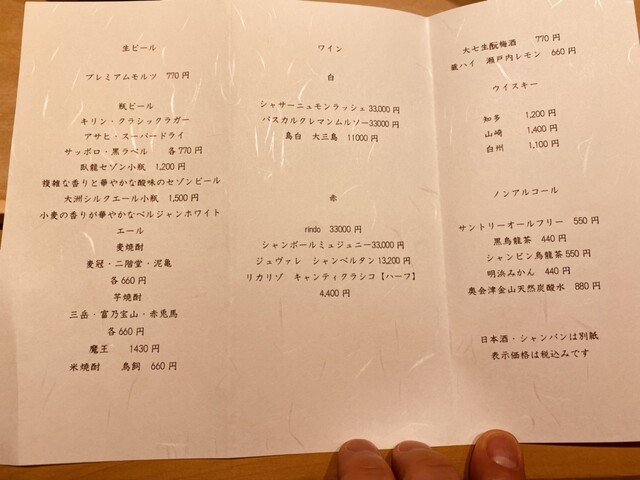 生ビール
プレミアムモルツ 770円
瓶ビール
キリン・クラシックラガー
アサヒ・スーパードライ
サッポロ・黒ラベル 各770円
臥龍セゾン小瓶 1,200円
複雑な香りと華やかな酸味のセゾンビール
大洲シルクエール小瓶 1,500円
小麦の香りが華やかなベルジャンホワイト
エール
麦焼酎
麦冠・二階堂・泥亀
各660円
芋焼酎
三岳・富乃宝山・赤兎馬
各660円
魔王 1430円
米焼酎 鳥飼 660円
ワイン
白
シャサーニュモンラッシェ 33,000円
パスカルクレマンムルソー33000円
島白 大三島 11000円
赤
rindo 33000円
シャンボールミュジュニー33,000円
ジュヴァレ シャンベルタン 13,200円
リカリゾ キャンティクラシコ【ハーフ】
4,400円
大七生酛梅酒 770円
蔵ハイ 瀬戸内レモン 660円
ウイスキー
知多 1,200円
山崎 1,400円
白州 1,100円
ノンアルコール
サントリーオールフリー 550円
黒烏龍茶 440円
シャンピン烏龍茶 550円
明浜みかん 440円
奥会津金山天然炭酸水 880円
日本酒・シャンパンは別紙
表示価格は税込みです